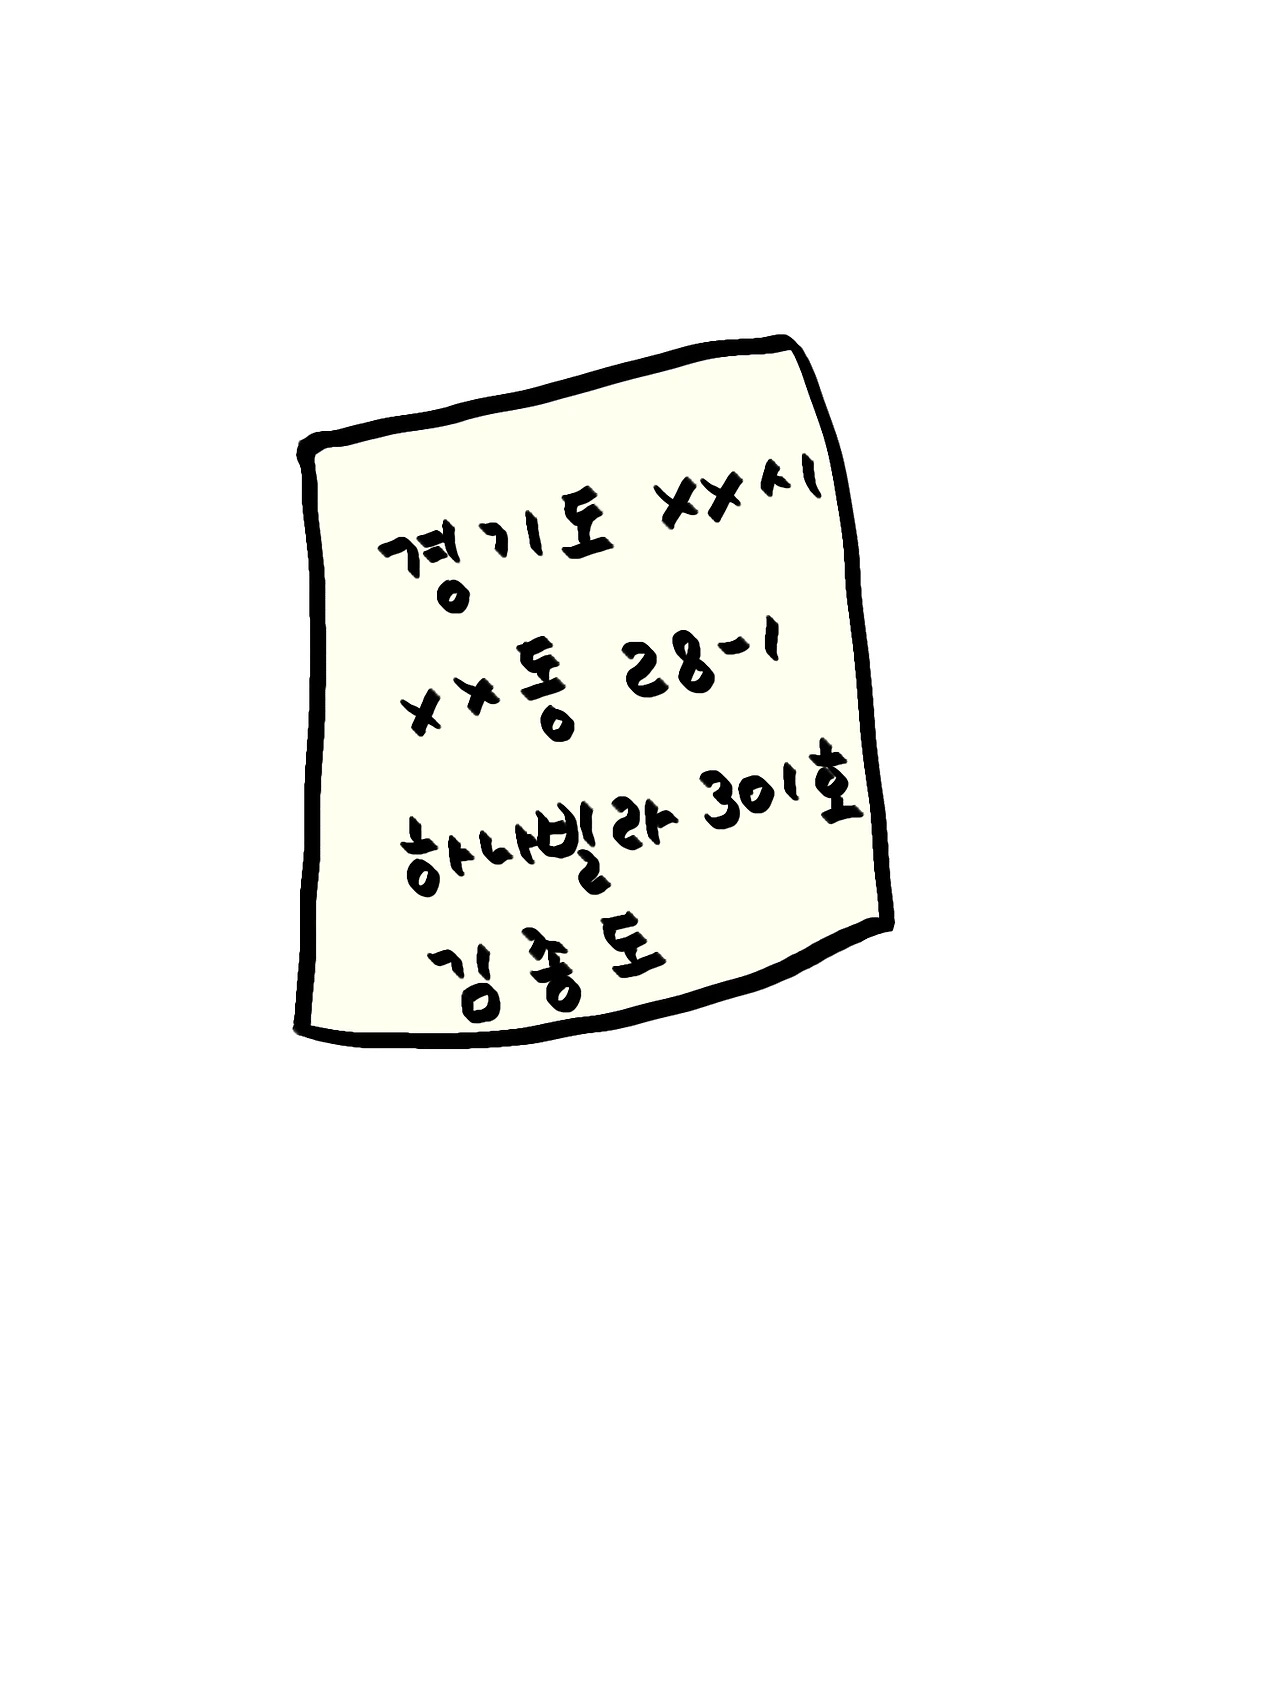 경기도 xx시
xx동 28-1
하나빌라 301호
김종도